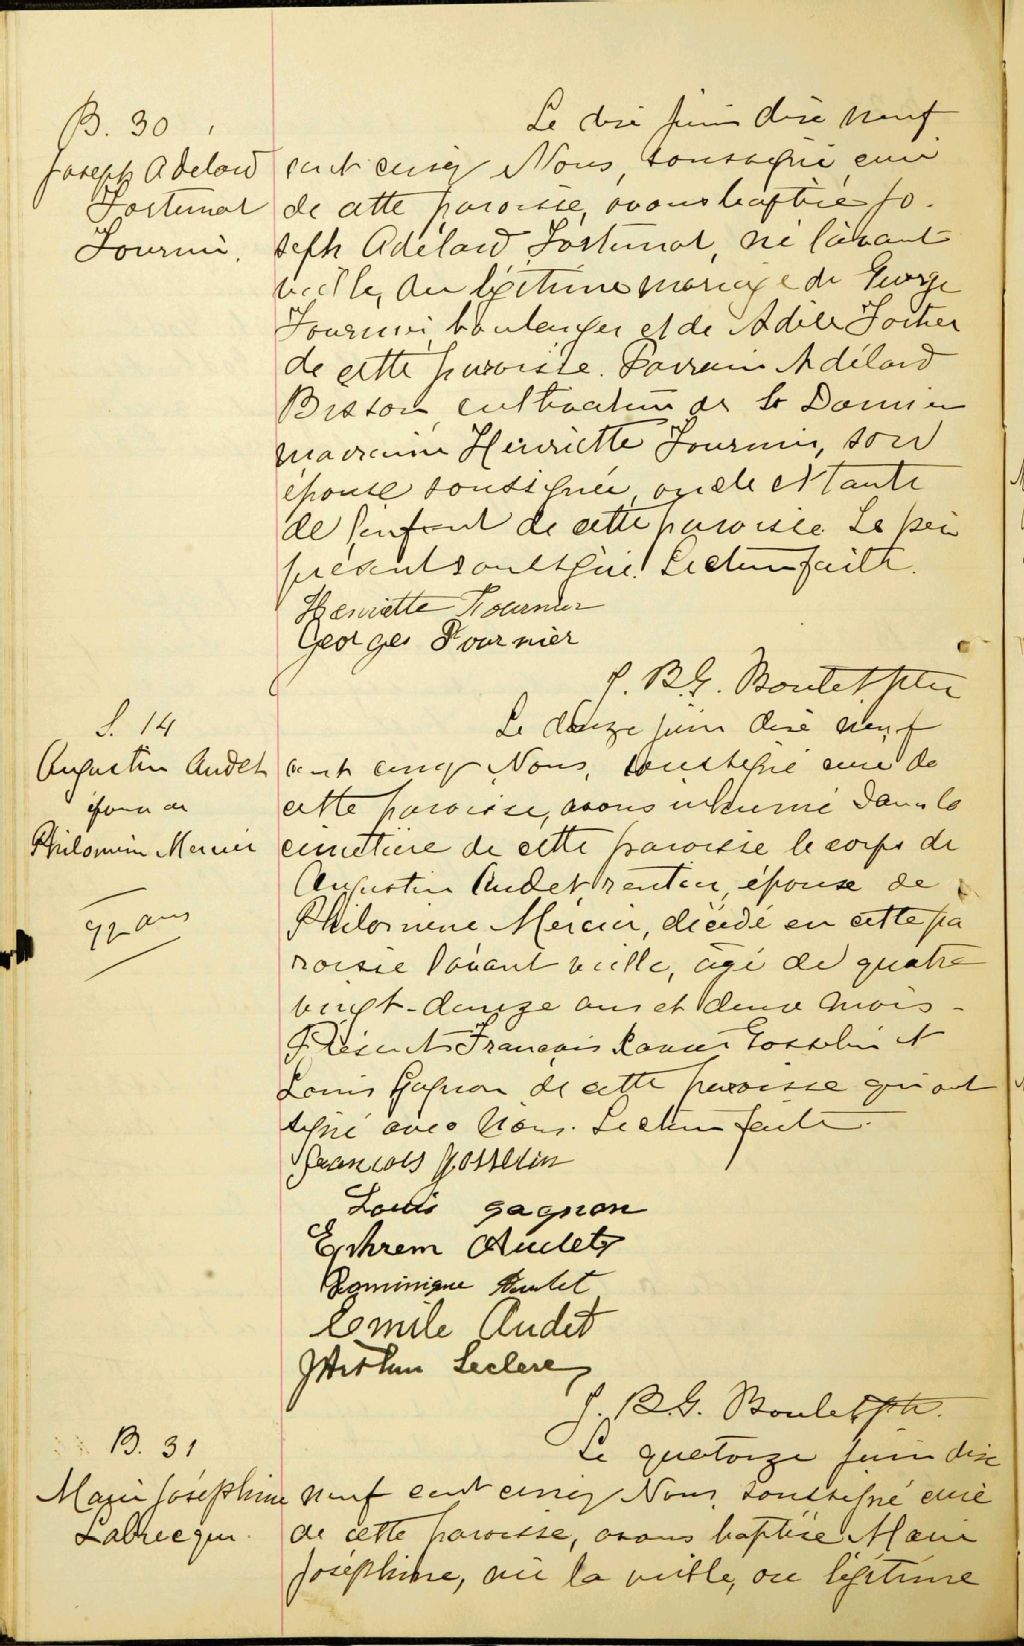 B. 30
Joseph Adelard
Fortunat
Fournier.
Le dix juin dix neuf
cent cinq Nous, soussigné curé
de cette paroisse, avons baptisé Jo-
seph Adélard Fortunat, né l'avant
veille, du légitime mariage de George
Fournier, boulanger et de Adèle Fortier
de cette paroisse. Parrain Adélard
Bisson cultivateur de St Damien
marraine Henriette Fournier, son
épouse soussignée, oncle et tante
de l'enfant de cette paroisse. Le père
présent soussigné. Lecture faite.
Henriette Fournier
Georges Fournier
J. B. G. Boulet Ptre
S. 14
Augustin Audet
époux de
Philomène Mercier
92 ans
Le douze juin dix neuf
cent cinq Nous, soussigné curé de
cette paroisse, avons inhumé dans le
cimetière de cette paroisse le corps de
Augustin Audet rentier, époux de
Philomène Mercier, décédé en cette pa
roisse l'avant veille, âgé de quatre
vingt-douze ans et deux mois-
Présents François Xavier Gosselin et
Louis Gagnon de cette paroisse qui ont
signé avec Nous. Lecture faite.
François Gosselin
Louis gagnon
Ephrem Audet
Dominique Audet
Emile Audet
Leclerc
J. B. G. Boulet Ptr.
B. 31
Marie Joséphine
Labrecque.
Le quatorze juin dix
neuf cent cinq Nous soussigné curé
de cette paroisse, avons baptisé Marie
Joséphine, née la veille, du légitime